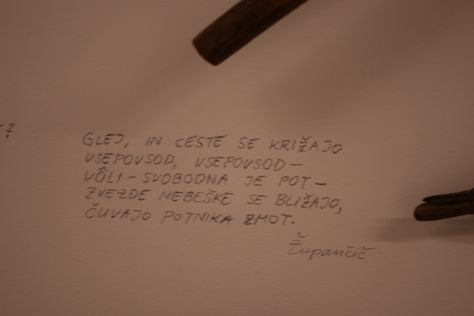 ?
GLEJ, IN CESTE SE KRIŽAJO
VSEPOVSOD, VSEPOVSOD –
VÔLI – SVOBODNA JE POT –
ZVEZDE NEBEŠKE SE BLIŽAJO,
ČUVAJO POTNIKA ZMOT.
Župančič